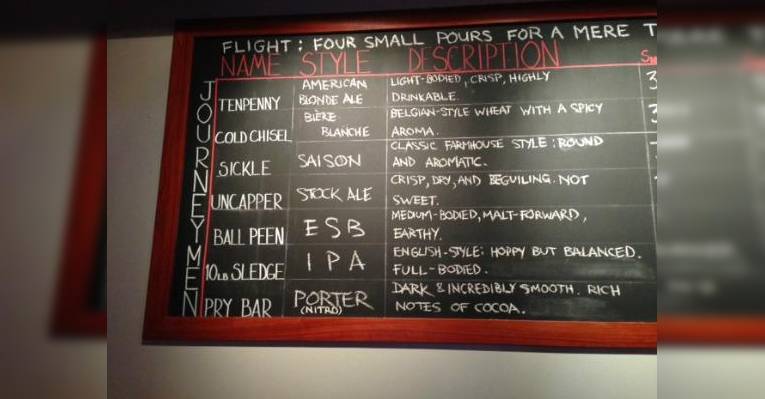 FLIGHT: FOUR SMALL POURS FOR A MERE T
NAME STYLE DESCRIPTION
JOURNEYMEN
TENPENNY AMERICAN BLONDE ALE LIGHT-BODIED, CRISP, HIGHLY DRINKABLE.
COLD CHISEL BIÈRE BLANCHE BELGIAN-STYLE WHEAT WITH A SPICY AROMA.
SICKLE SAISON CLASSIC FARMHOUSE STYLE: ROUND AND AROMATIC.
UNCAPPER STOCK ALE CRISP, DRY, AND BEGUILING. NOT SWEET.
BALL PEEN ESB MEDIUM-BODIED, MALT-FORWARD, EARTHY.
10LB SLEDGE IPA ENGLISH-STYLE: HOPPY BUT BALANCED. FULL-BODIED.
PRY BAR PORTER (NITRO) DARK & INCREDIBLY SMOOTH. RICH NOTES OF COCOA.